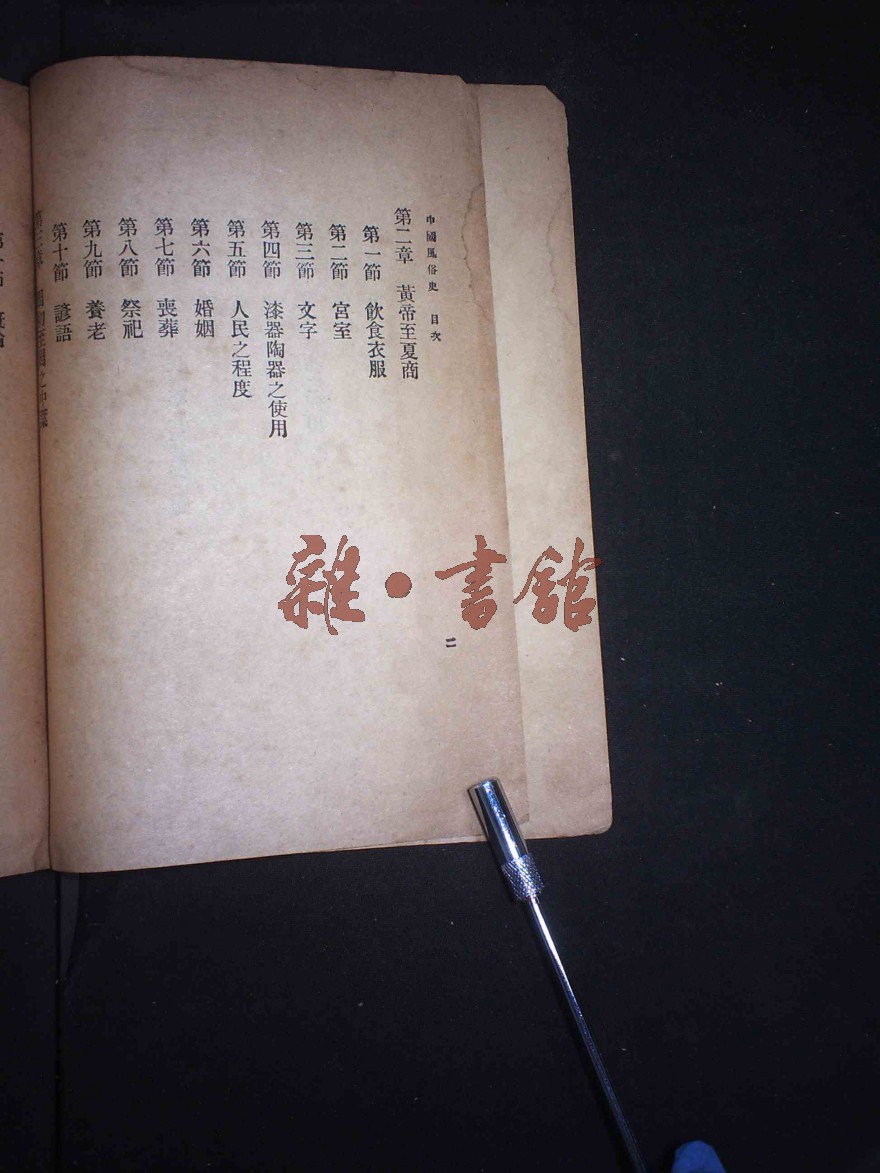 中國風俗史 目次
第二章 黃帝至夏商
第一節 飲食衣服
第二節 宮室
第三節 文字
第四節 漆器陶器之使用
第五節 人民之程度
第六節 婚姻
第七節 喪葬
第八節 祭祀
第九節 養老
第十節 諺語
二
雜·書館